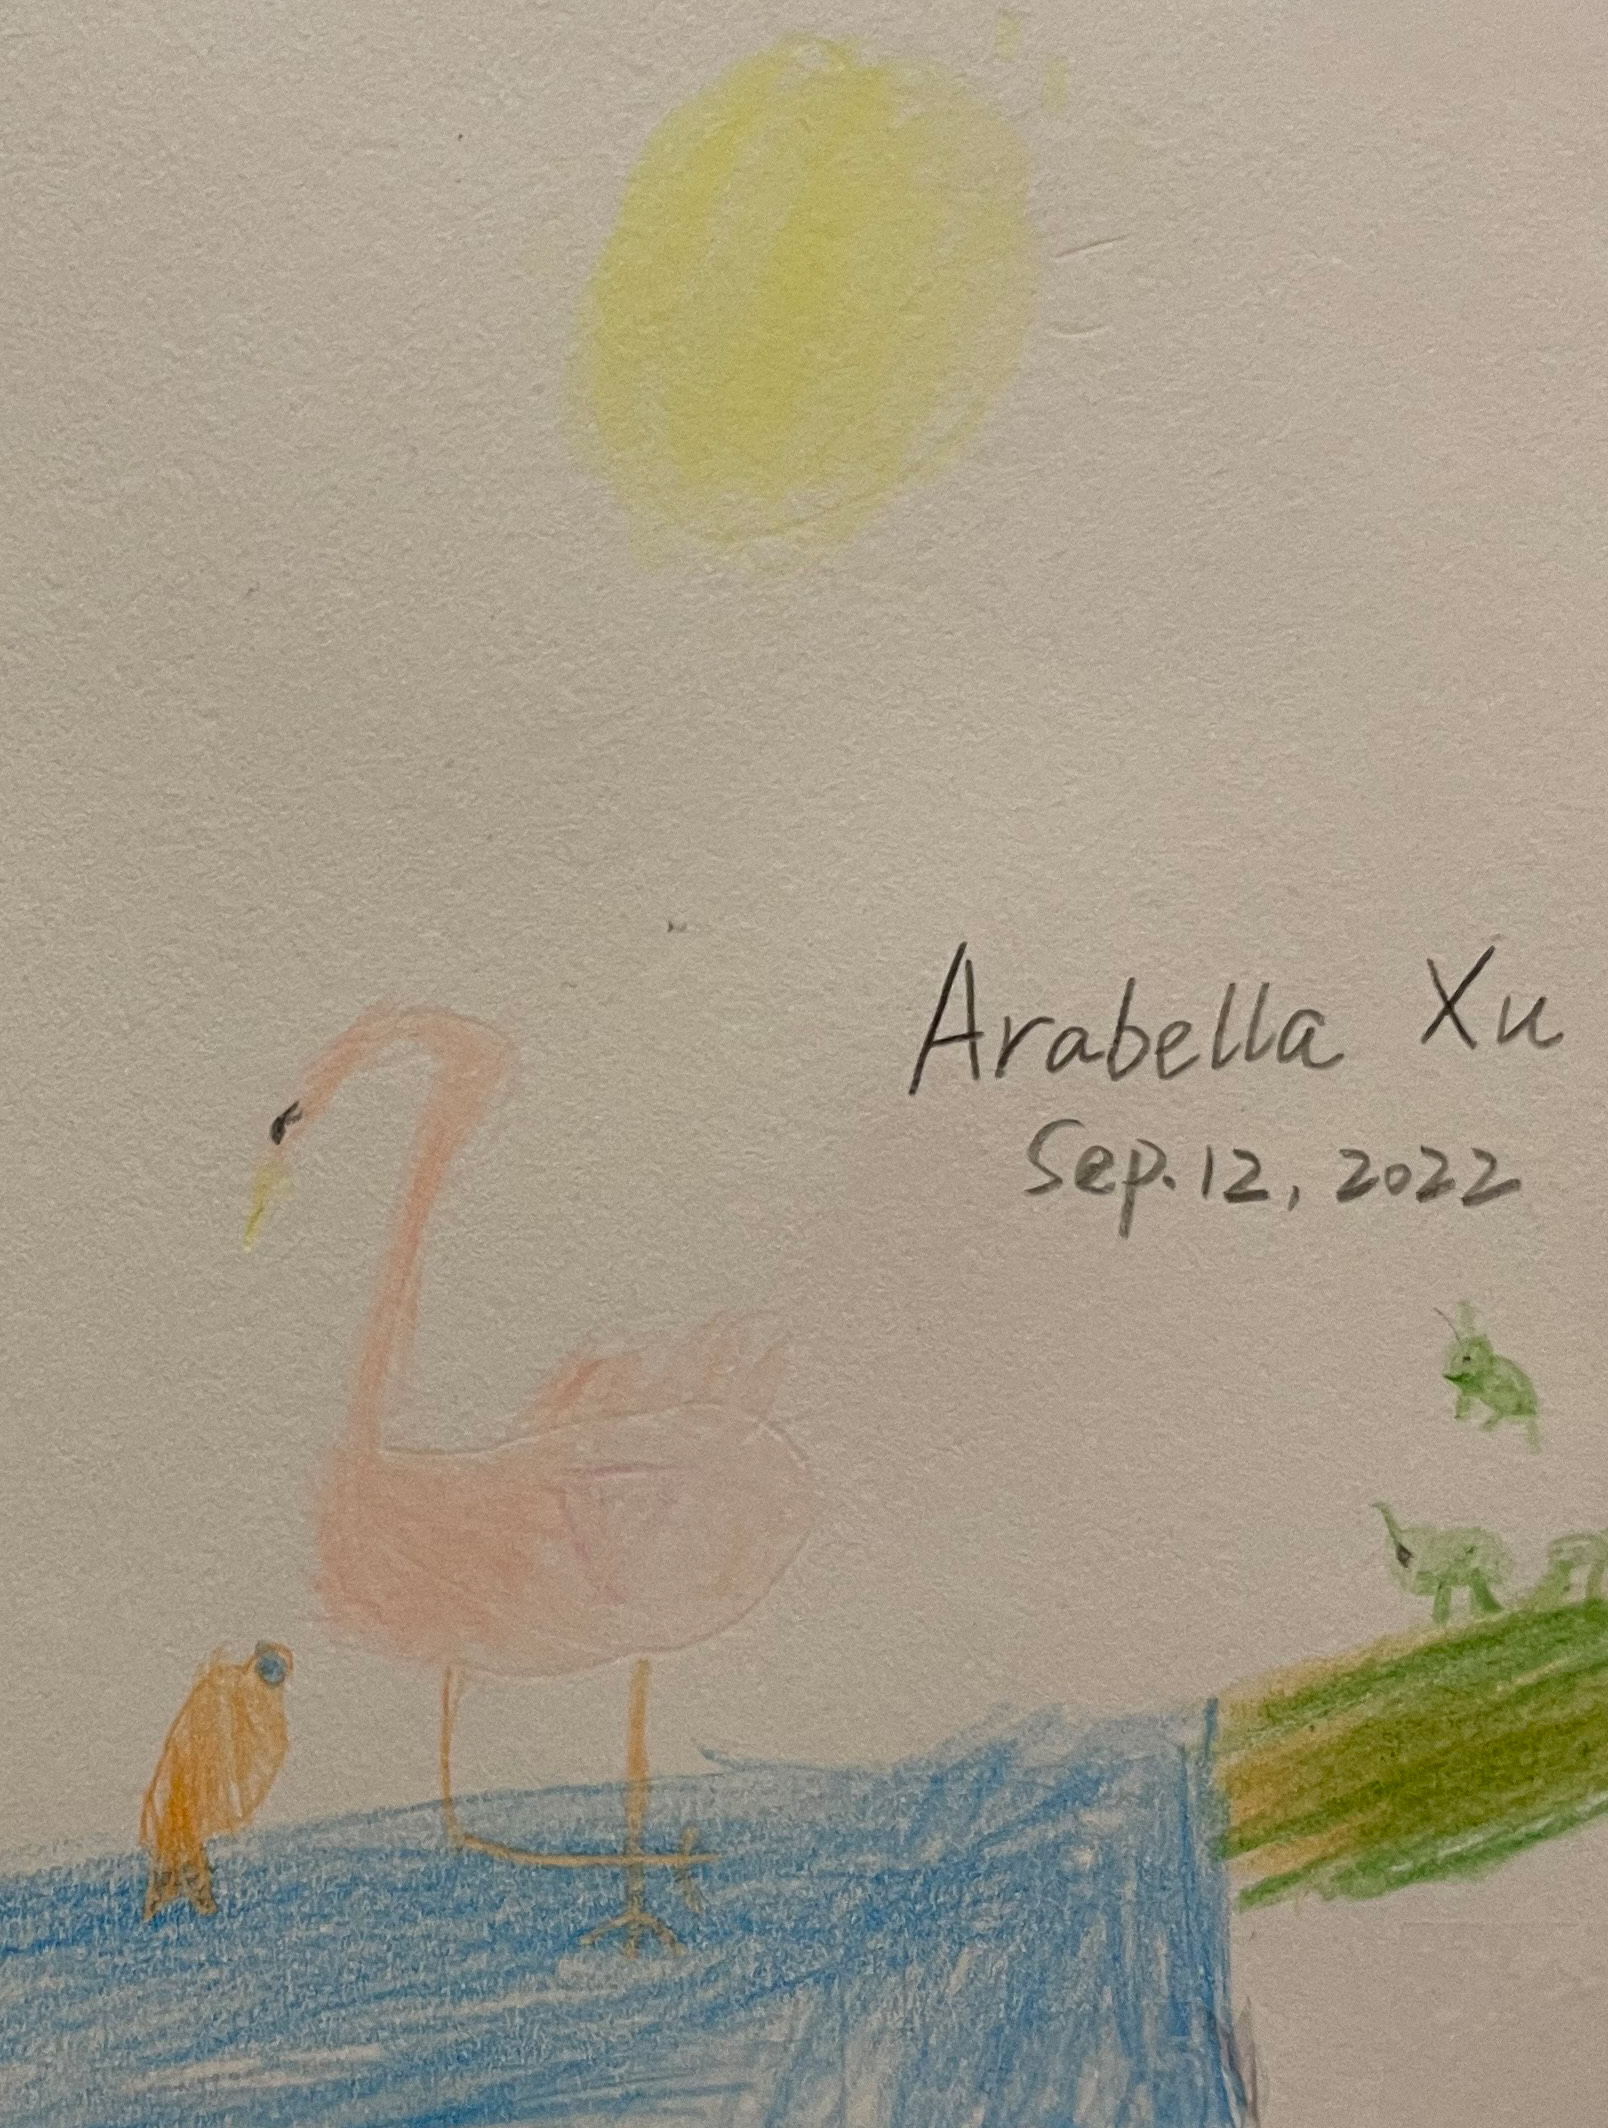 Arabella Xu
Sep. 12, 2022